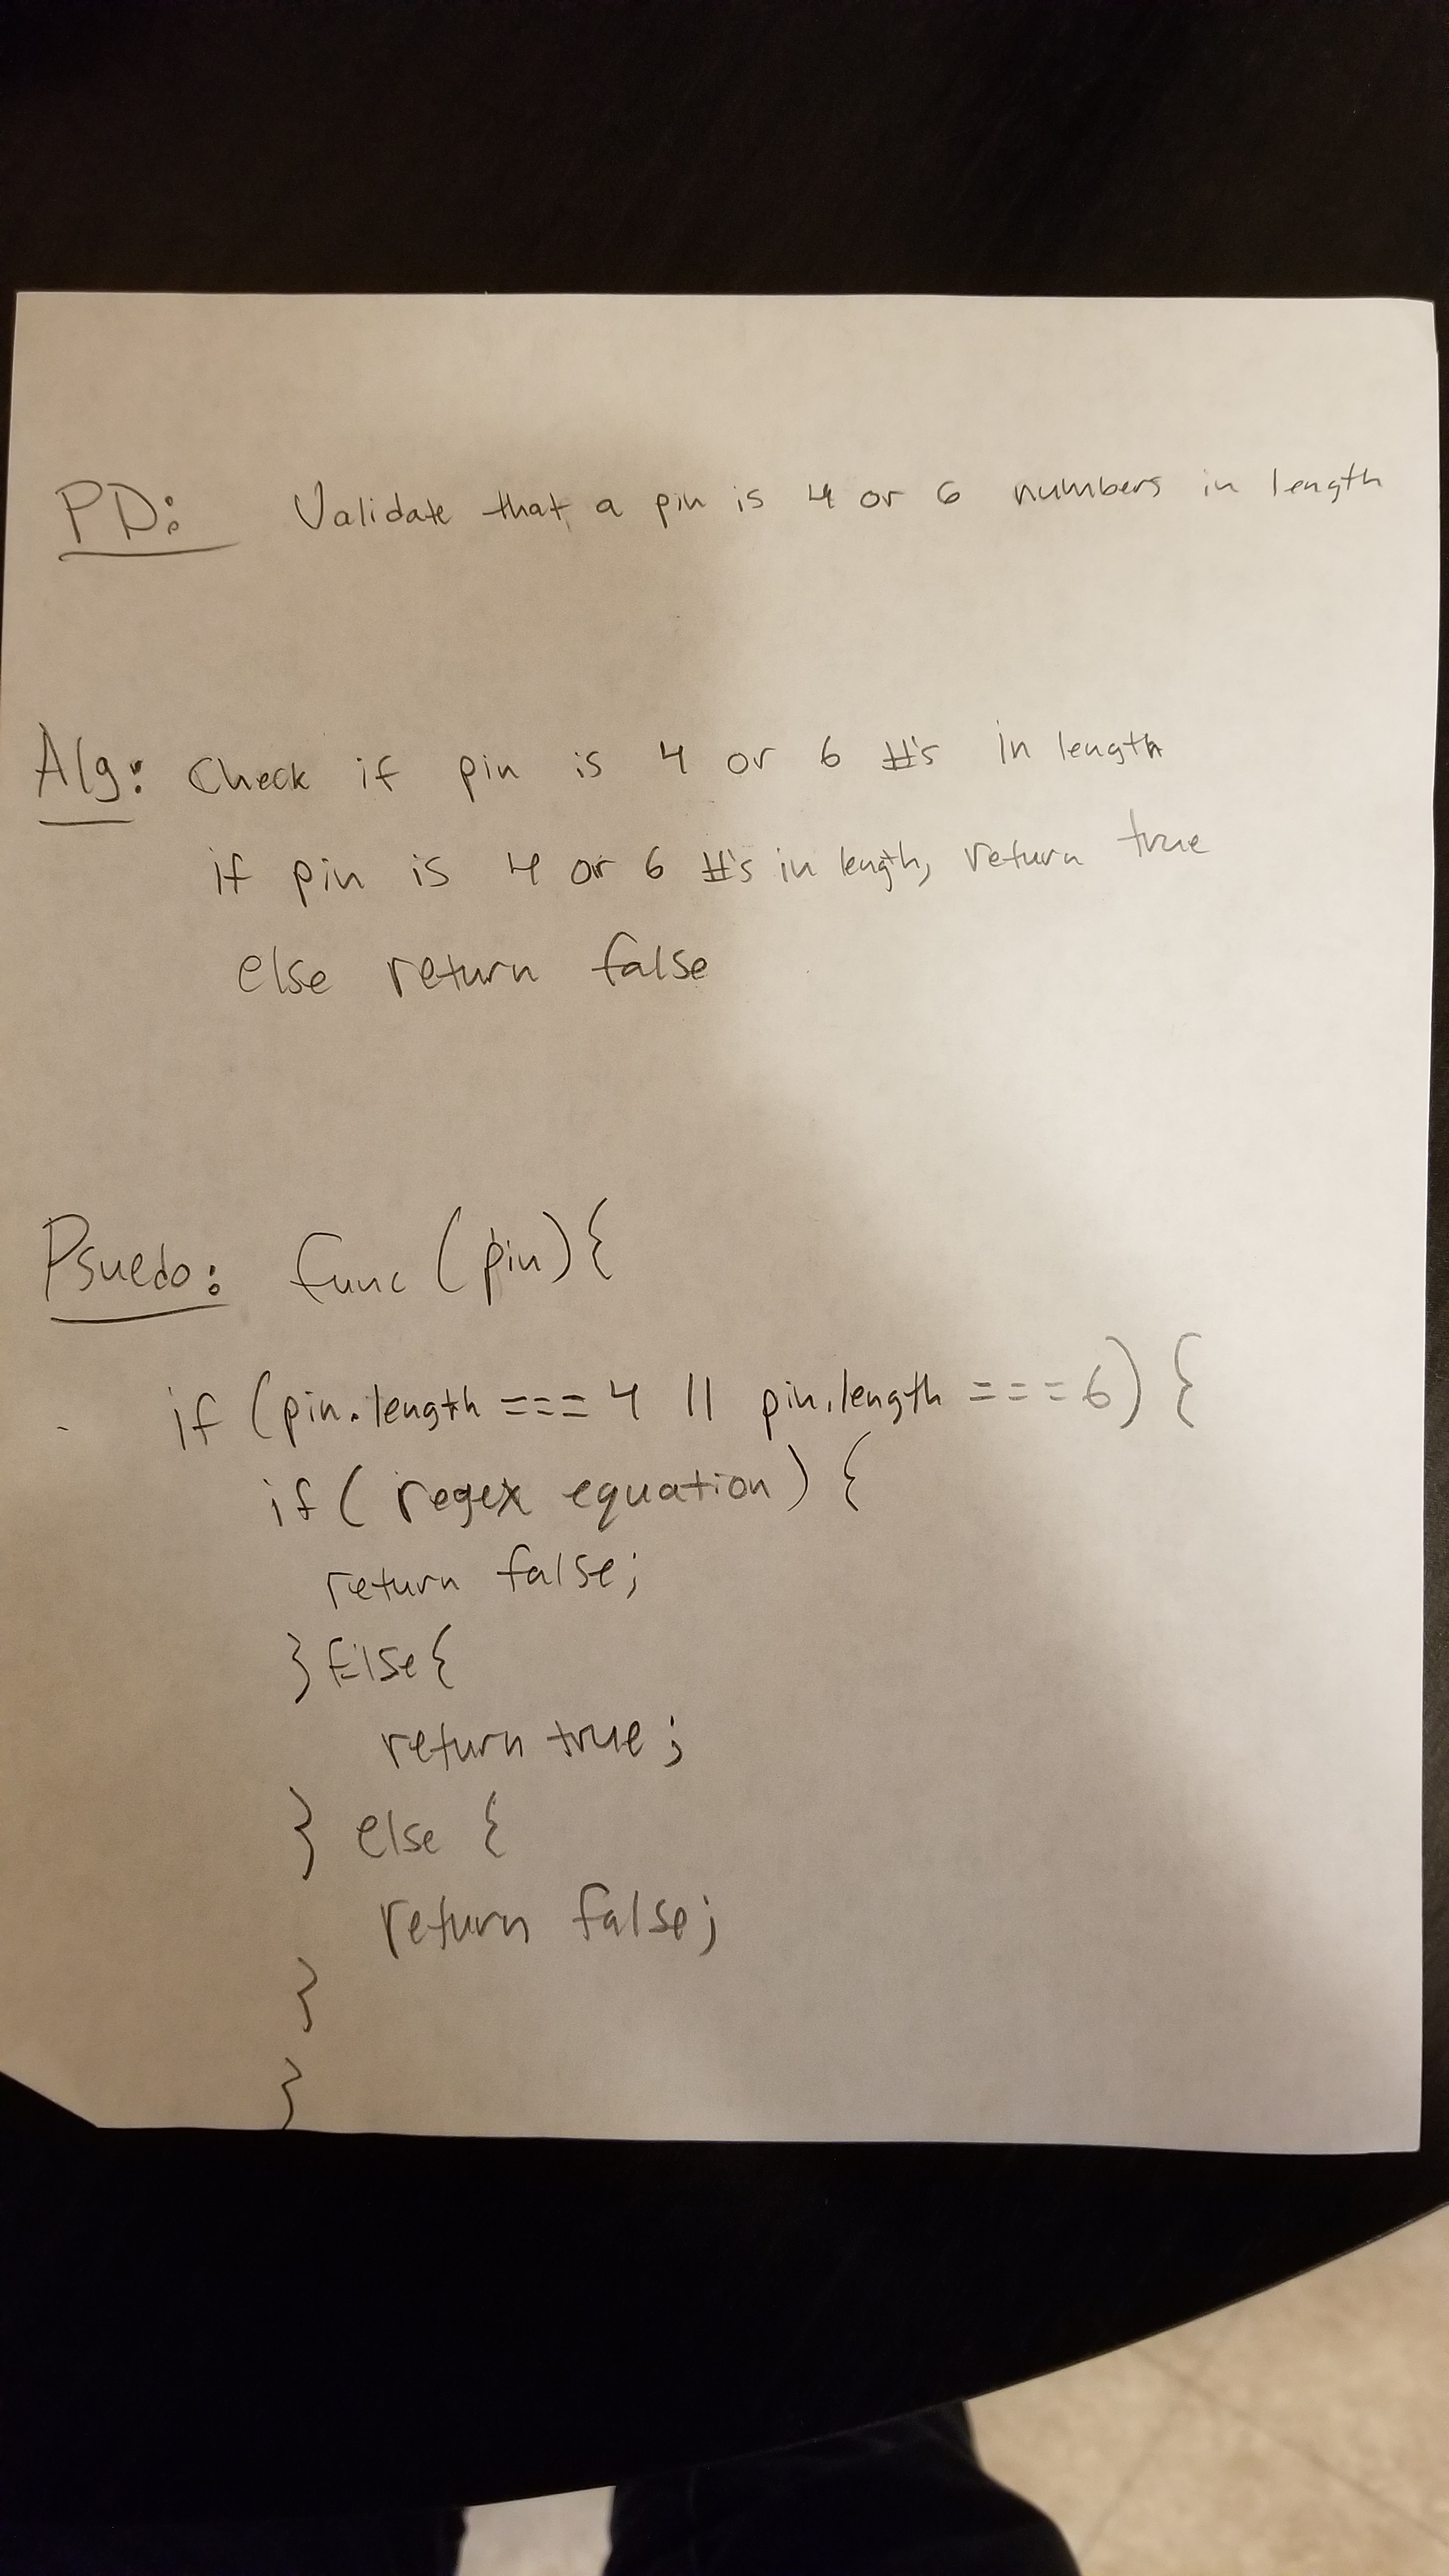 PD: Validate that a pin is 4 or 6 numbers in length
Alg: Check if pin is 4 or 6 #'s in length
if pin is 4 or 6 #'s in length, return true
else return false
Psuedo: func (pin) {
if (pin.length === 4 || pin.length === 6) {
if ( regex equation) {
return false;
} Else {
return true;
} else {
return false;
}
}